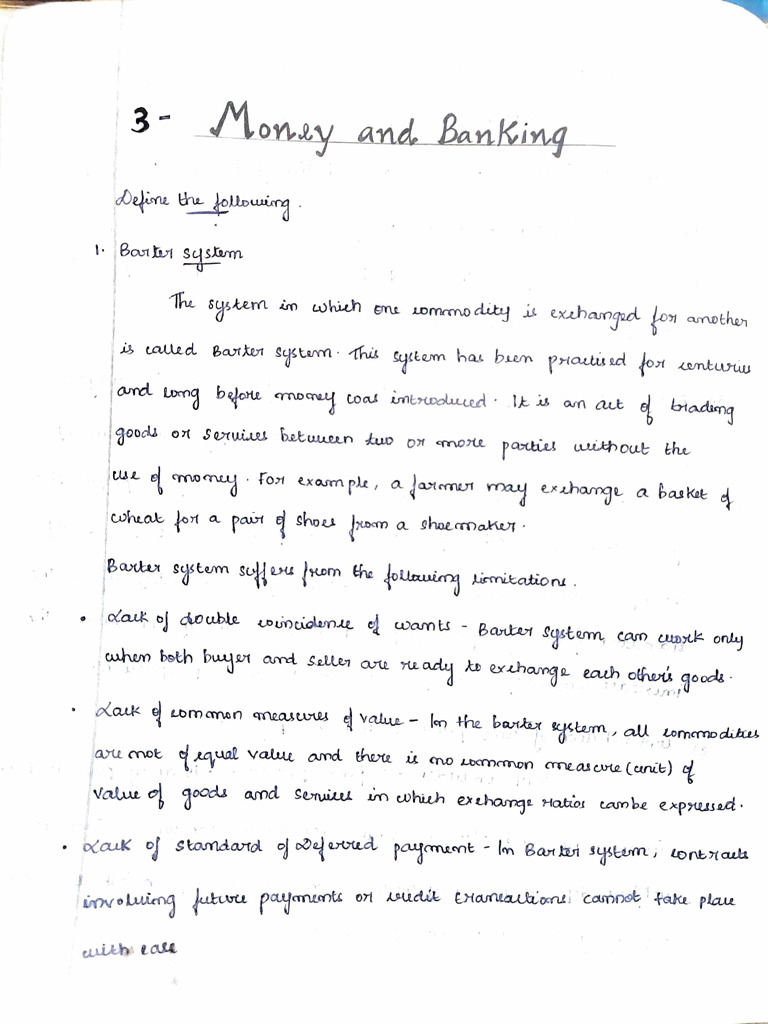 3- Money and Banking
Define the following.
1. Barter system
The system in which one commodity is exchanged for another
is called Barter system. This system has been practised for centuries
and long before money was introduced. It is an act of trading
goods or services between two or more parties without the
use of money. For example, a farmer may exchange a basket of
wheat for a pair of shoes from a shoemaker.
Barter system suffers from the following limitations.
• Lack of double coincidence of wants - Barter system, can work only
when both buyer and seller are ready to exchange each other's goods.
• Lack of common measures of value - In the barter system, all commodities
are not of equal value and there is no common measure (unit) of
value of goods and services in which exchange ratios can be expressed.
• Lack of standard of Deferred payment - In Barter system, contracts
involving future payments or credit transactions cannot take place
with ease